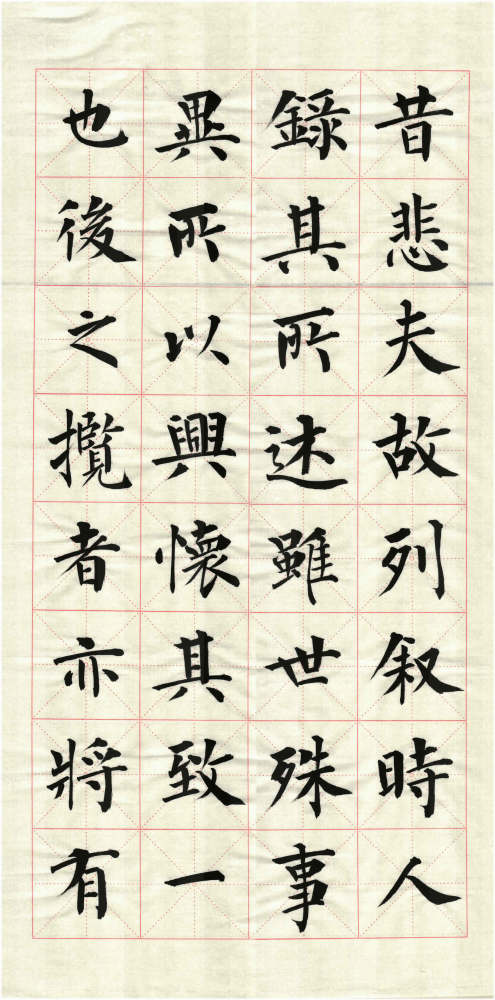 昔悲夫故列叙時人
錄其所述雖世殊事
異所以興懷其致一
也後之攬者亦將有